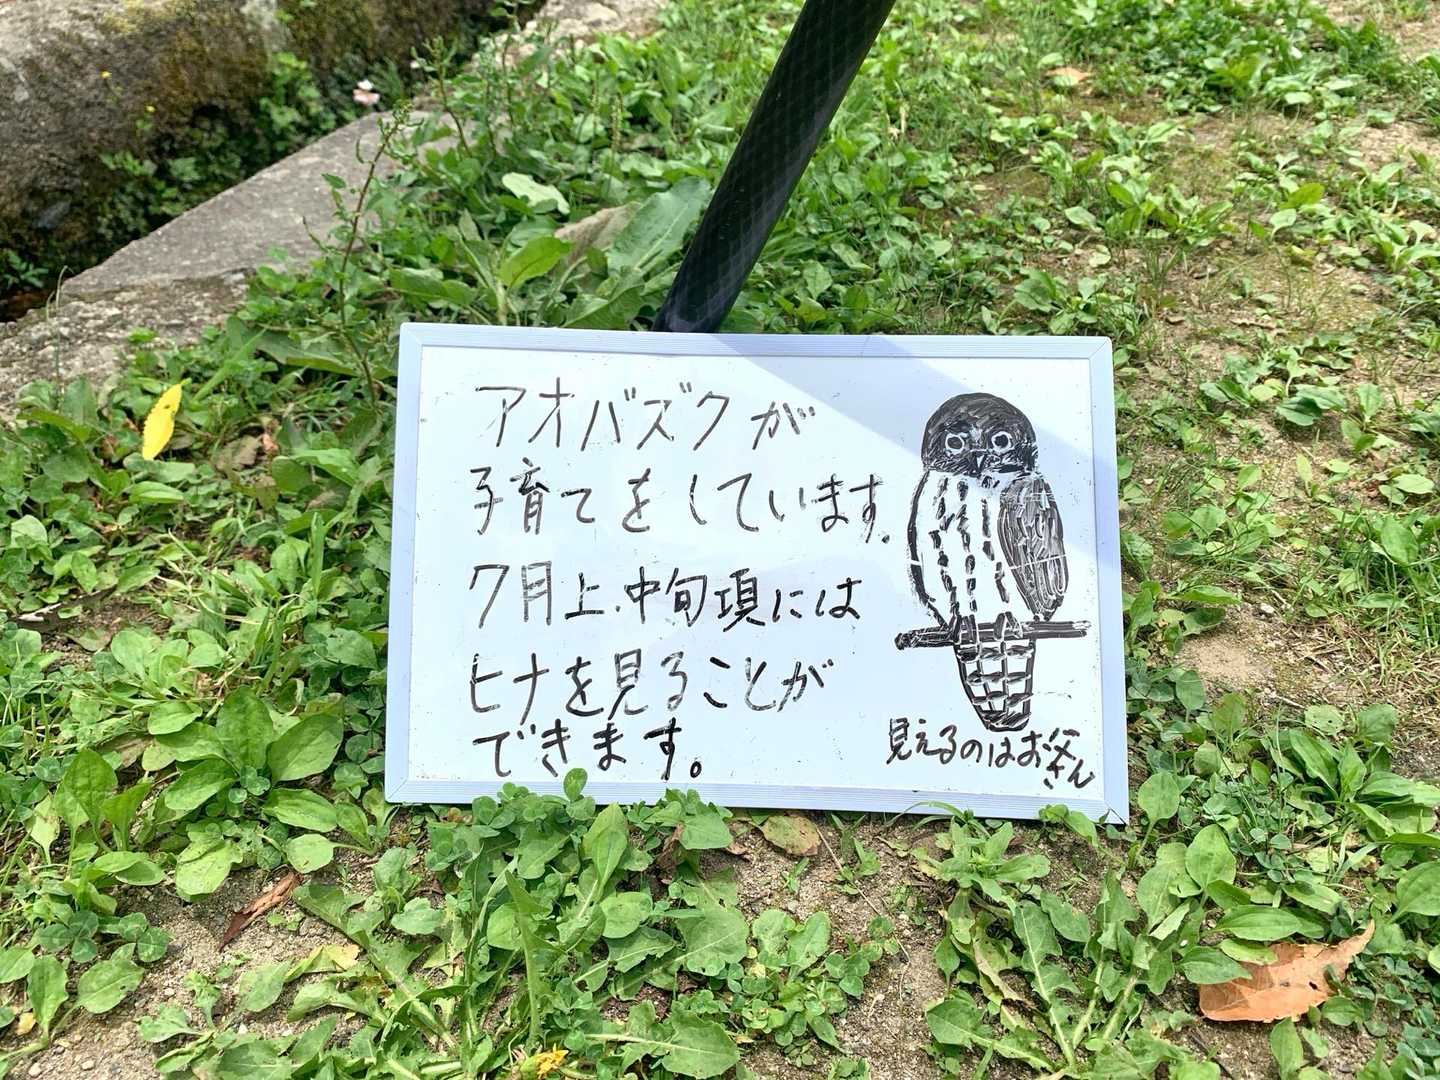 アオバズクが
子育てをしています。
7月上.中旬頃には
ヒナを見ることが
できます。
見えるのはお父さん